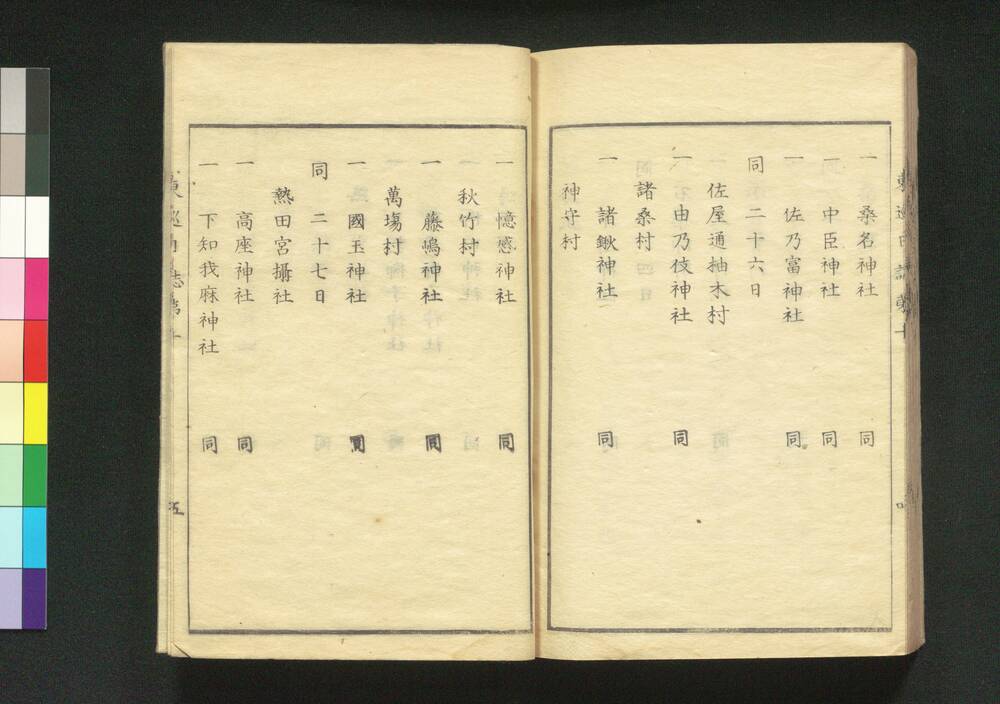 一 桑名神社 同
一 中臣神社 同
一 佐乃富神社 同
同 二十六日
佐屋通抽木村
一 由乃伎神社 同
諸桑村
一 諸鍬神社 同
神守村
一 憶感神社 同
秋竹村
一 藤嶋神社 同
萬塲村
一 國玉神社 同
同 二十七日
熱田宮攝社
一 高座神社 同
一 下知我麻神社 同
五